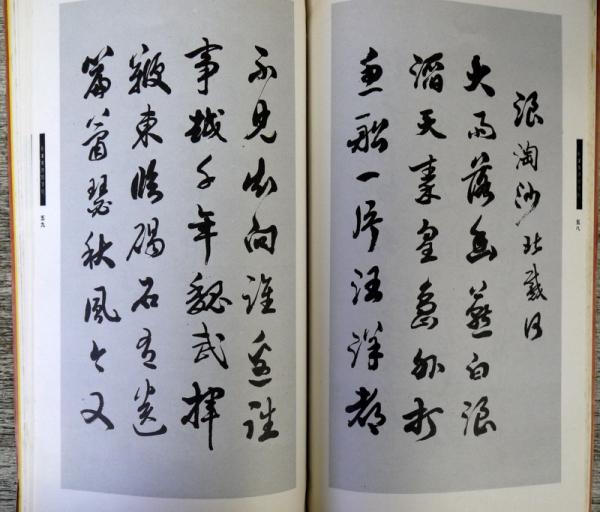 浪淘沙 北戴河
大雨落幽燕白浪
滔天秦皇島外打
魚船一片汪洋都
五八
不見知向誰邊往
事越千年魏武揮
鞭東臨碣石有遺
篇蕭瑟秋風今又
五九